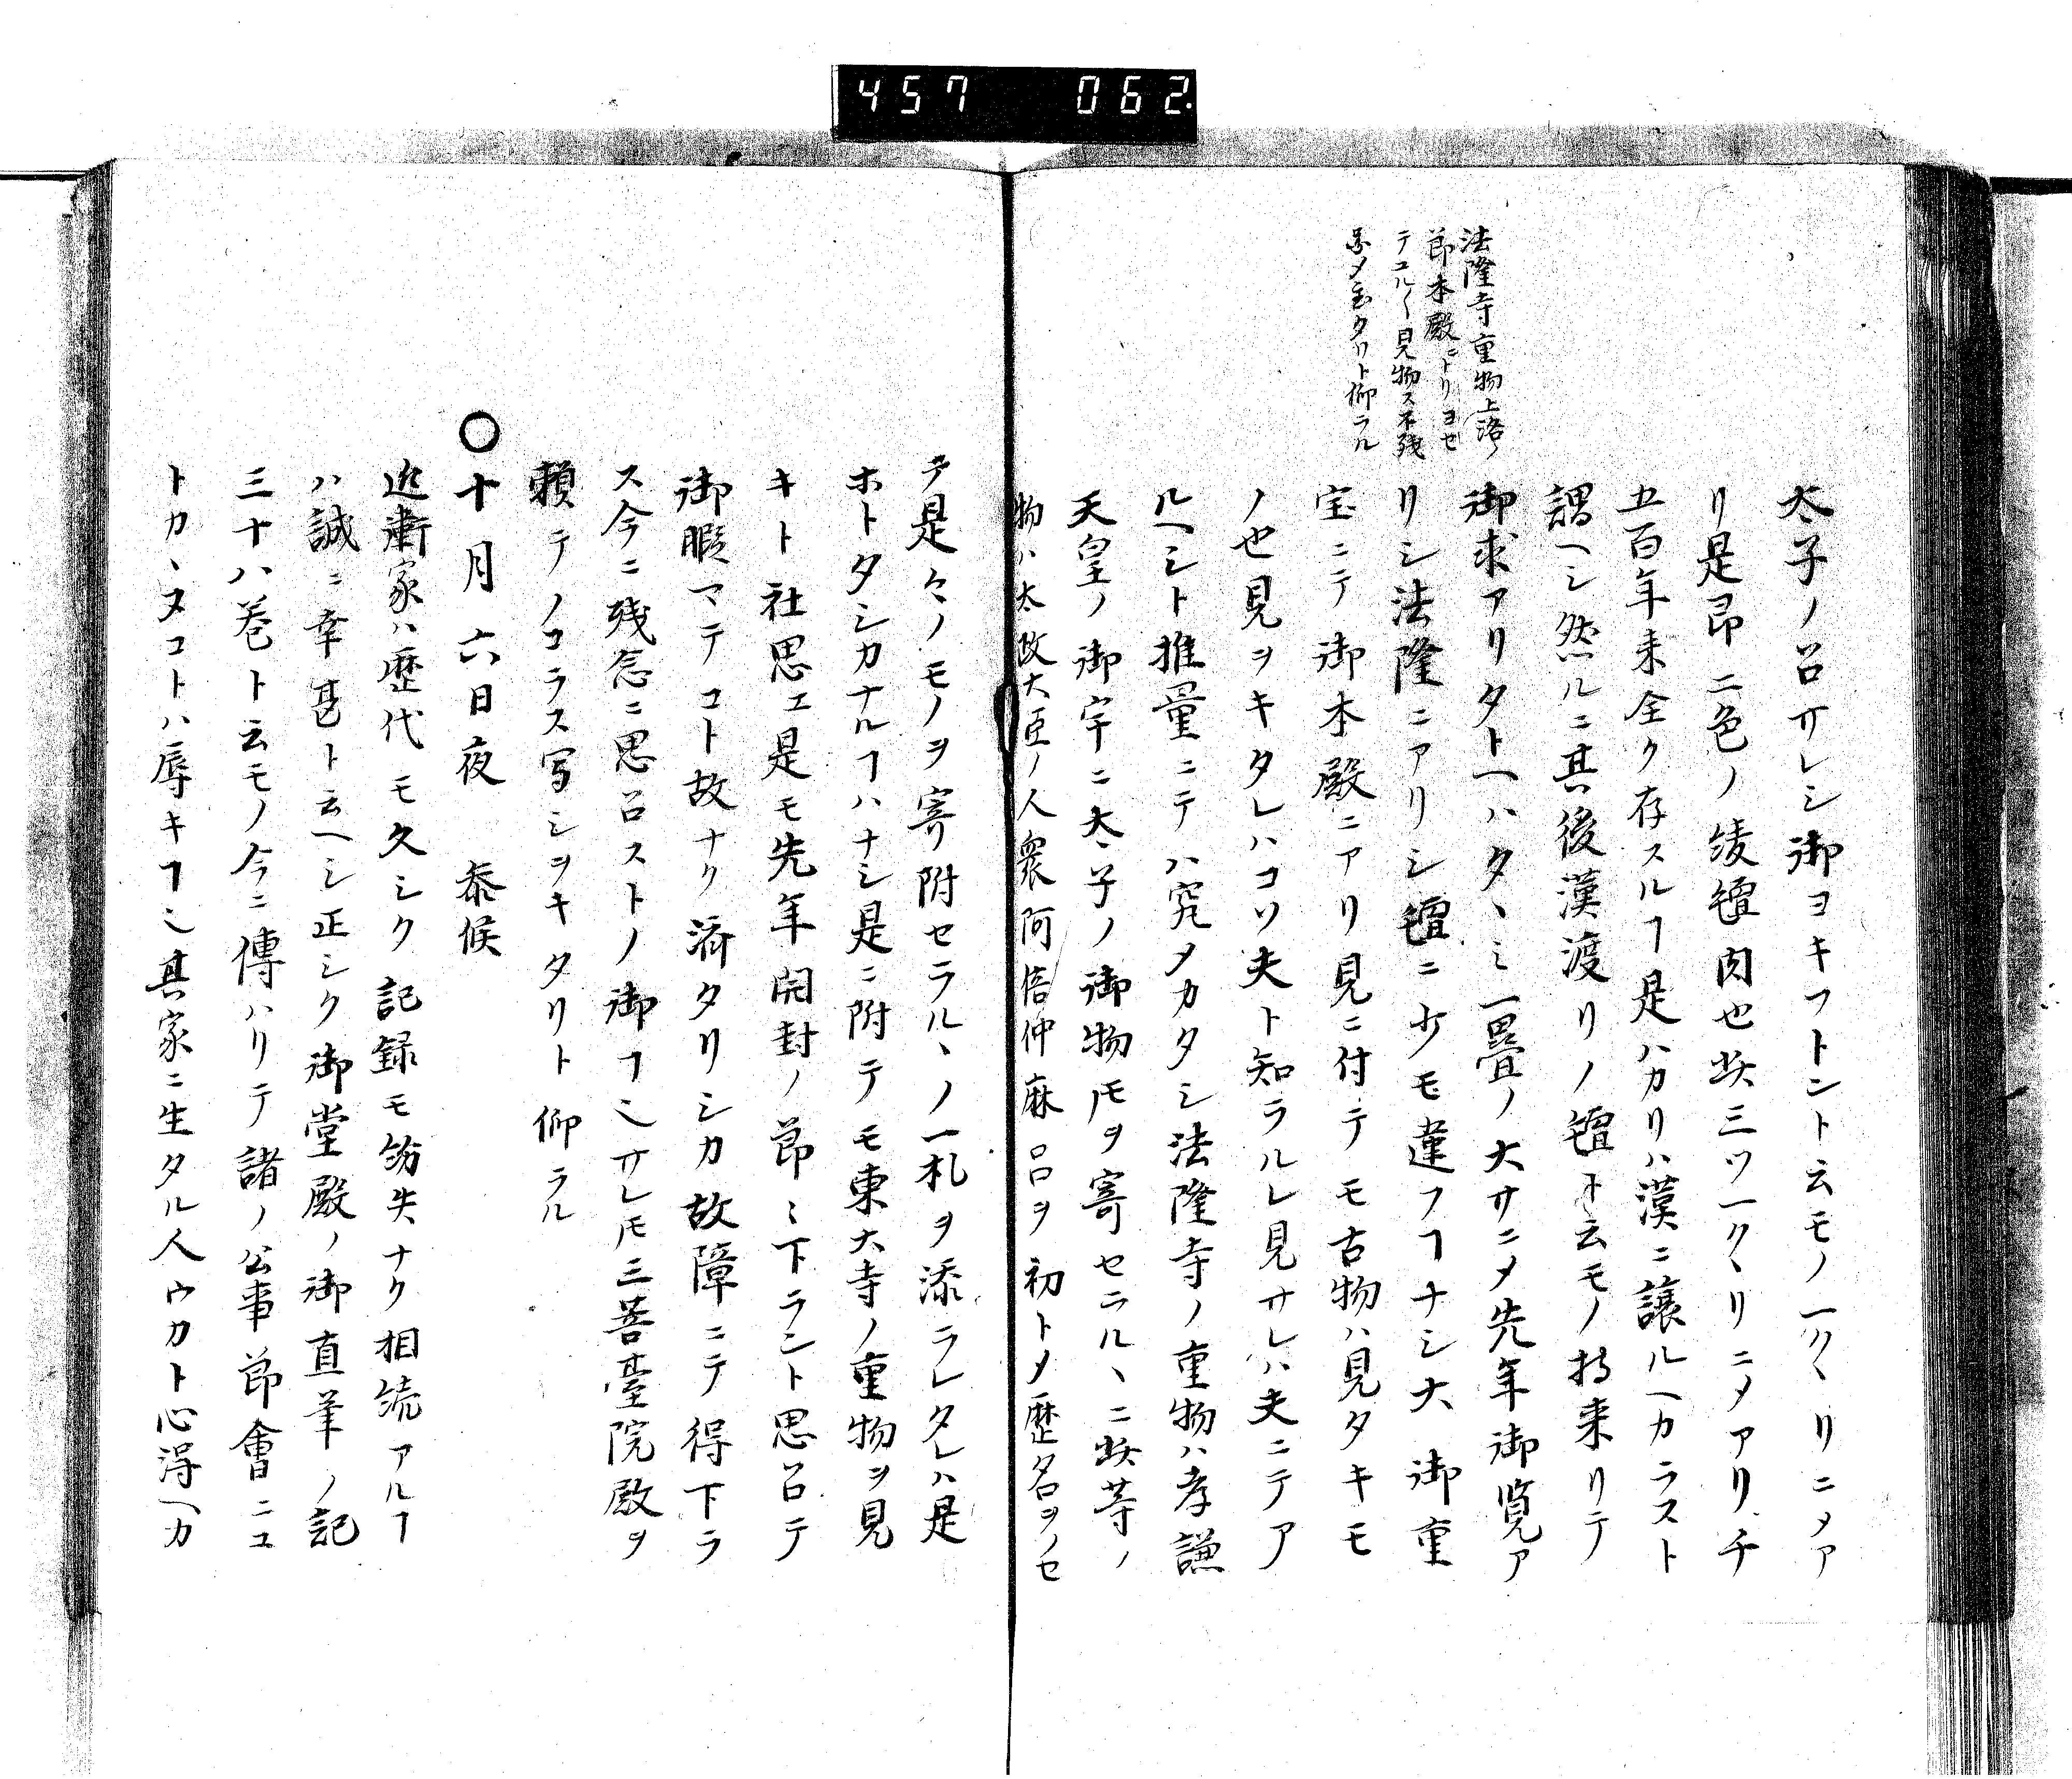 457 062
法隆寺重物上洛ノ
節本殿ニトリヨセ
テユル〱見物ス不残
写メ置タリト仰ラル
太子ノ召サレシ御ヨキフトントモ云モノ一クヽリニメア
リ是昂二色ノ綾氊肉也此三ツ一クヽリニメアリ千
五百年来全ク存スルヿ是ハカリハ漢ニ譲ルヘカラスト
謂ヘシ然ルニ其後漢渡リノ氊ト云モノ持来リテ
御求アリタトヘハタヽミ一畳ノ大サニメ先年御覧ア
リシ法隆ニアリシ氊ニ少モ違フヿナシ大御重
宝ニテ御本殿ニアリ見ニ付テモ古物ハ見タキモ
ノ也見ヲキタレハコソ夫ト知ラルレ見サレハ夫ニテア
ルヘシト推量ニテハ究メカタシ法隆寺ノ重物ハ孝謙
天皇ノ御宇ニ太子ノ御物𪜈ヲ寄セラルヽニ此等ノ
物ハ太政大臣ノ人衆阿倍仲麻呂ヲ初トメ歴名ヲノセ
テ是々ノモノヲ寄附セラルヽノ一札ヲ添ラレタレハ是
ホトタシカナルヿハナシ是ニ附テモ東大寺ノ重物ヲ見
キト社思エ是モ先年開封ノ節ミ下ラント思召テ
御暇マテコト故ナク済タリシカ故障ニテ得下ラ
ス今ニ残念ニ思召ストノ御ヿ也サレ𪜈三菩薹院殿ヲ
頼テノコラス写シヲキタリト仰ラル
〇十月六日夜 参候
近衛家ハ歴代モ久シク記録モ紛失ナク相続アルヿ
ハ誠ニ幸甚ト云ヘシ正シク御堂殿ノ御直筆ノ記
三十八巻ト云モノ今ニ傳ハリテ諸ノ公事節會ニユ
トカヽヌコトハ辱キヿ也其家ニ生タル人ウカト心得ヘカ